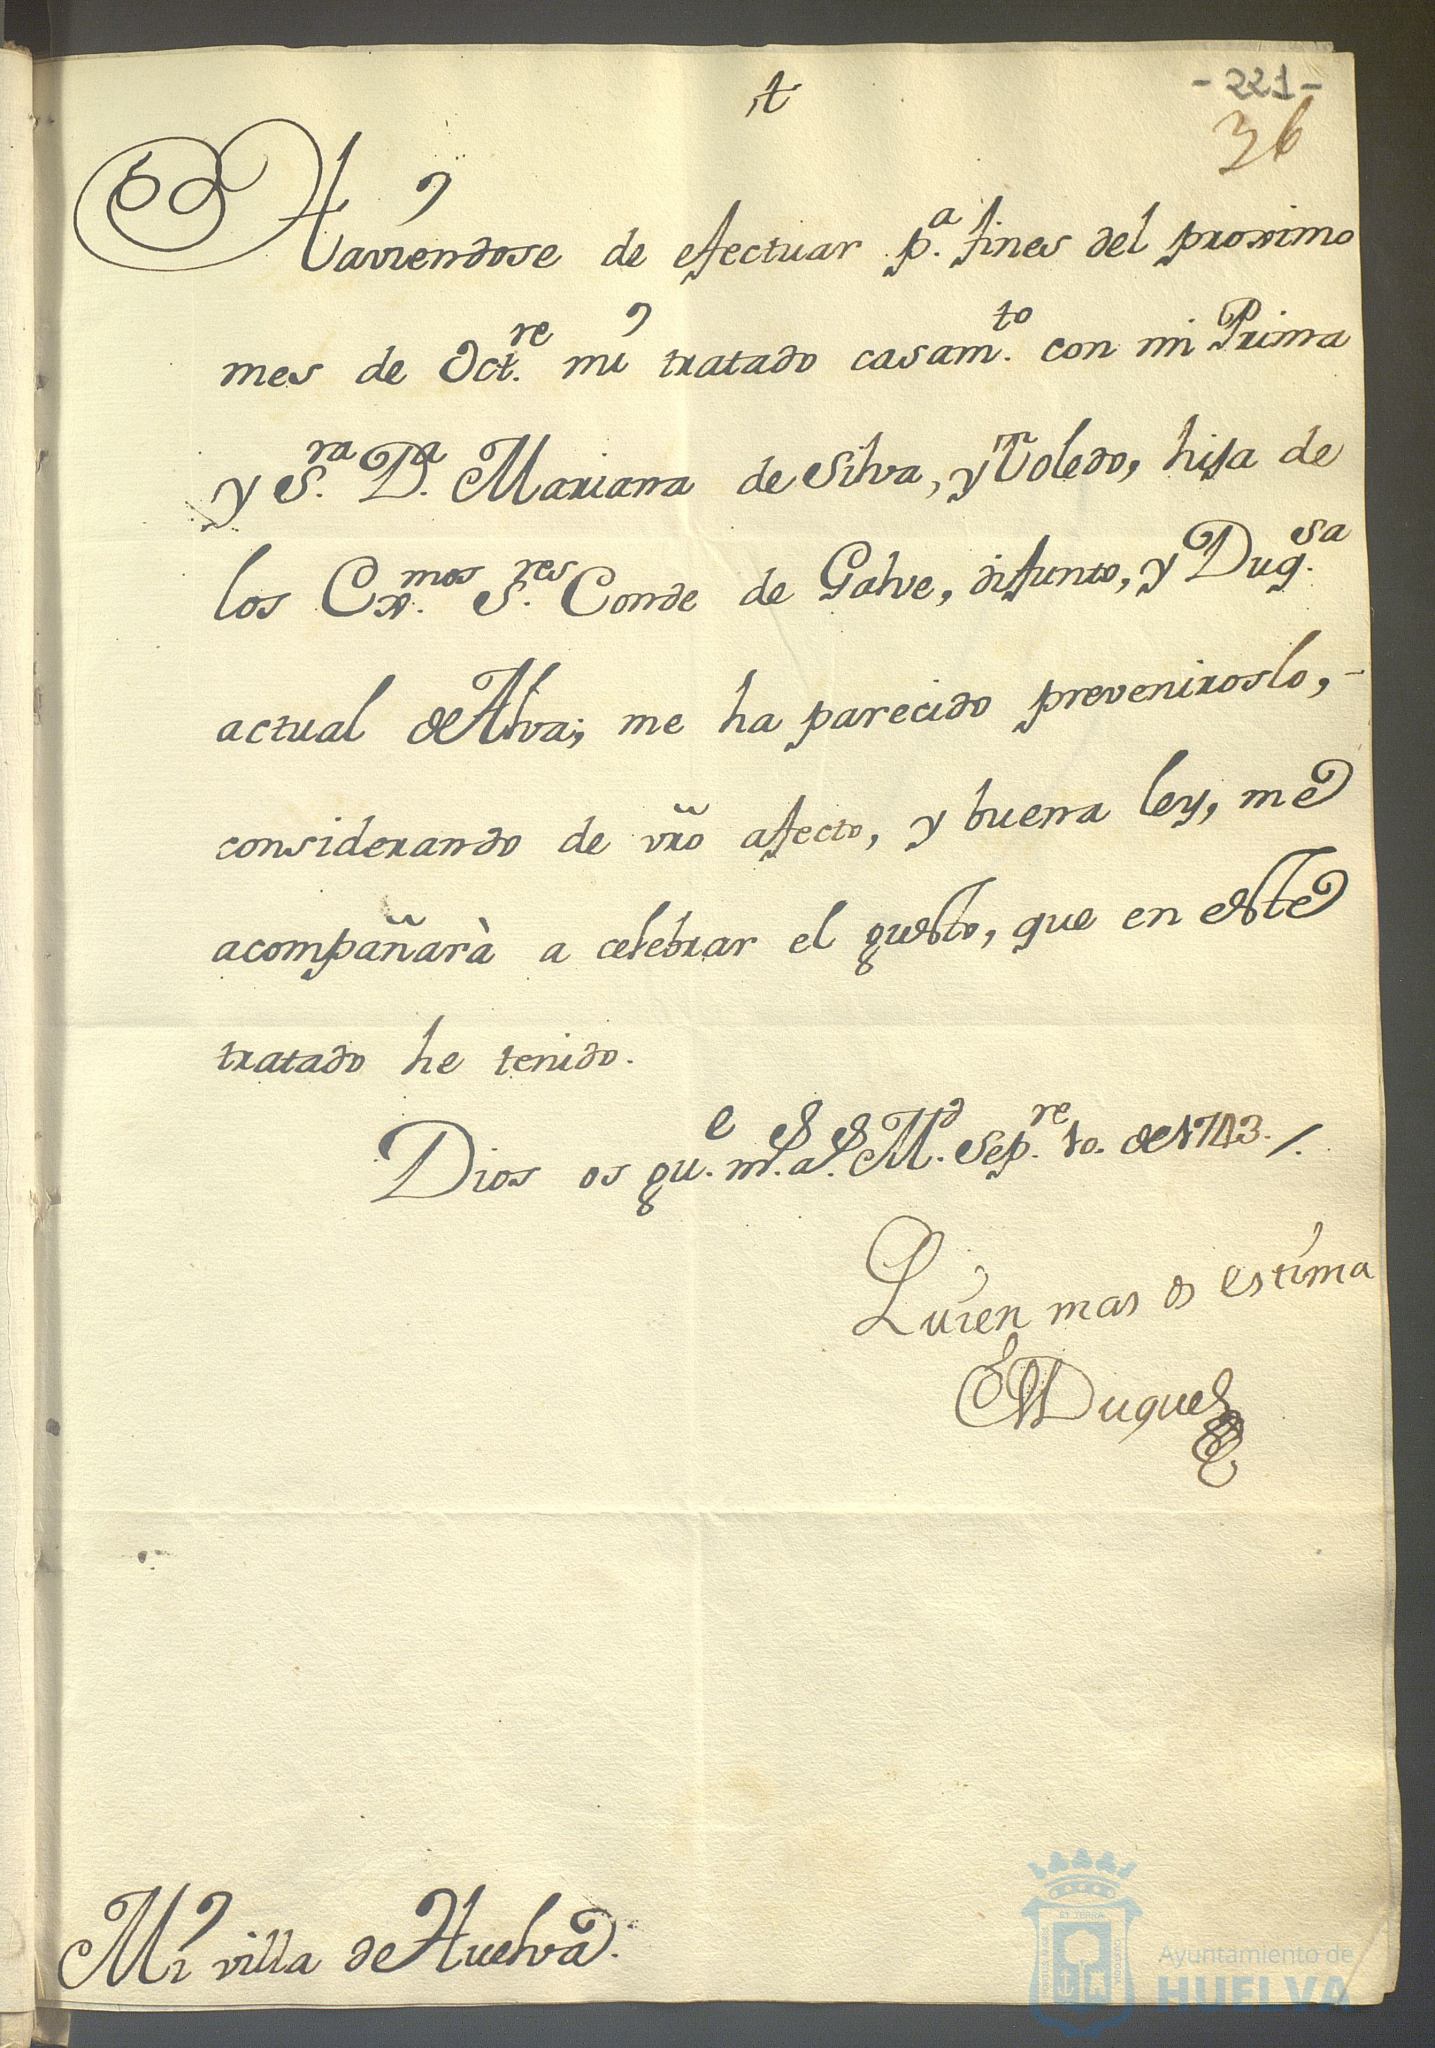 -221-
36
Haviendose de efectuar p.ª fines del proximo
mes de Oct.re mi tratado casam.to con mi Prima
y S.ra D.ª Mariana de Silva, y Toledo, hija de
los Ex.mos S.res Conde de Galve, difunto, y Duq.sa
actual de Alva; me ha parecido preveniroslo,-
considerando de vr̃o afecto, y buena ley, me
acompañarà a celebrar el gusto, que en este
tratado he tenido.
Dios os gu.e m.s a.s M.d Sep.re 10. de 1743./.
Quien mas os estima
El Duque
Mi villa de Huelva.
Ayuntamiento de
HUELVA